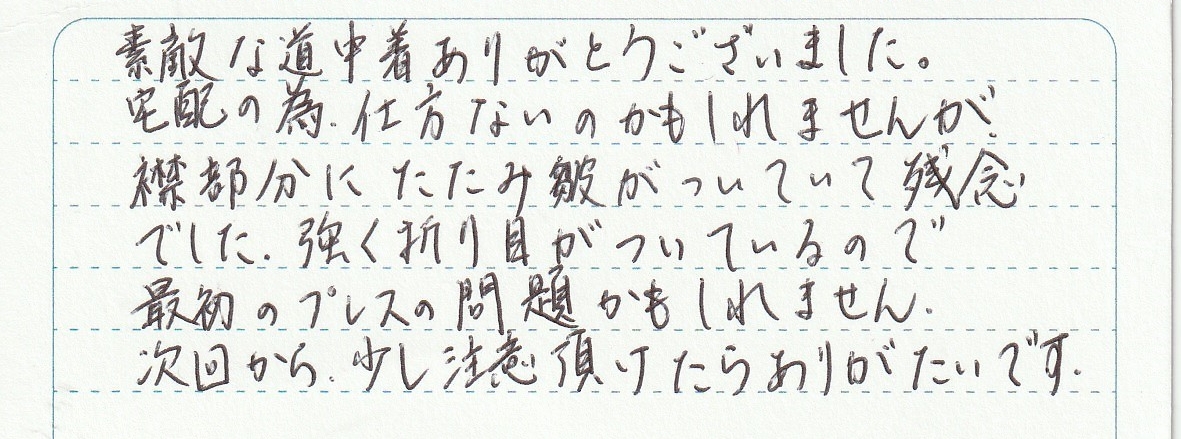 素敵な道中着ありがとうございました。
宅配の為、仕方ないのかもしれませんが、
襟部分にたたみ皺がついていて残念
でした。強く折り目がついているので
最初のプレスの問題かもしれません。
次回から、少し注意頂けたらありがたいです。